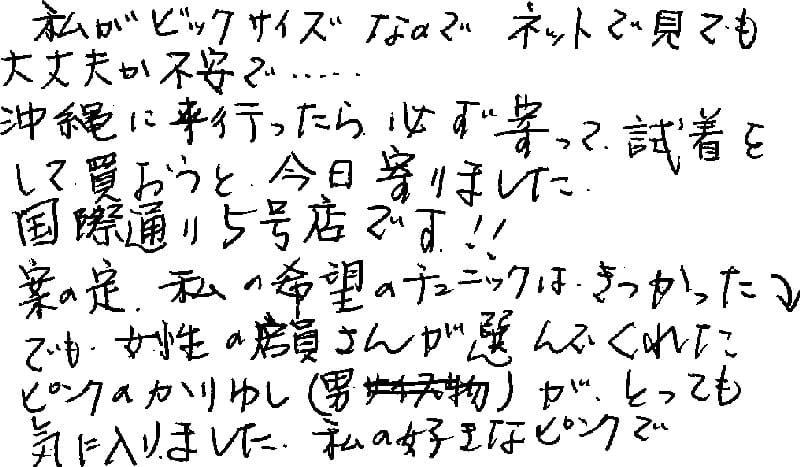 私がビックサイズなのでネットで見ても
大丈夫か不安で‥‥‥
沖縄に来行ったら必ず寄って、試着を
して買おうと、今日寄りました。
国際通り5号店です!!
案の定、私の希望のチュニックは、きつかった↓
でも、女性の店員さんが選んでくれた
ピンクのかりゆし(男物)が、とっても
気に入りました。私の好きなピンクで